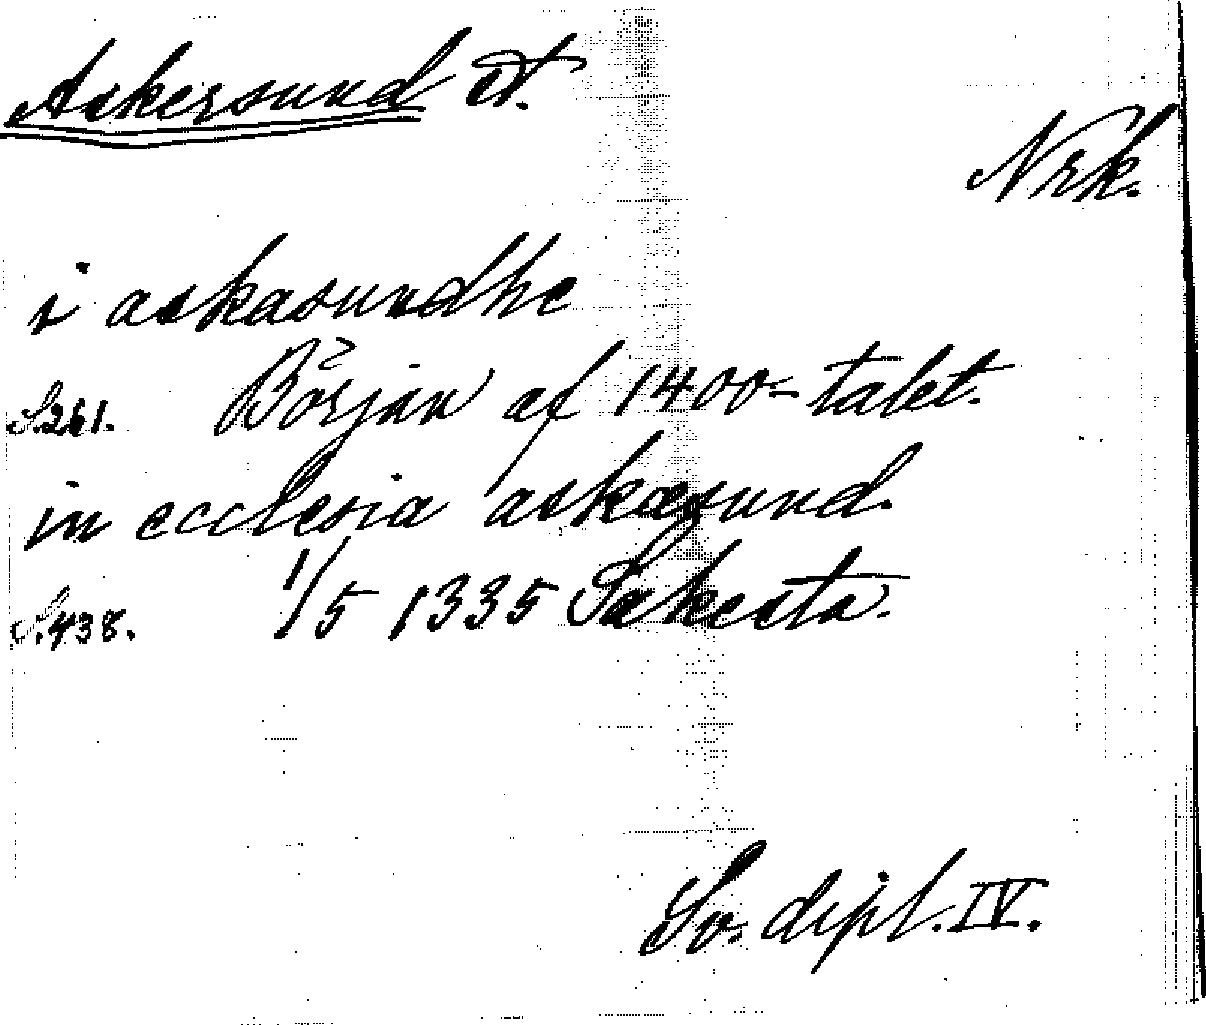 Askersund st.
Nrk.
i askasundhe
S.261. Början af 1400-talet.
in ecclesia askæsund.
S.438. 1/5 1335 Sækesta.
Sv. dipl. IV.